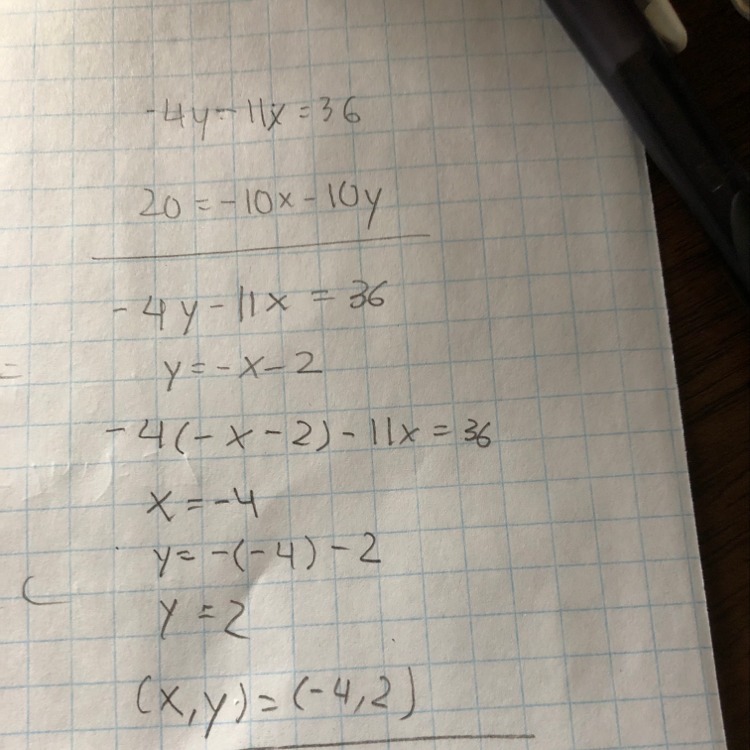 -4y-11x=36
20=-10x-10y
-4y-11x=36
y=-x-2
-4(-x-2)-11x=36
x=-4
y=-(-4)-2
y=2
(x,y)=(-4,2)